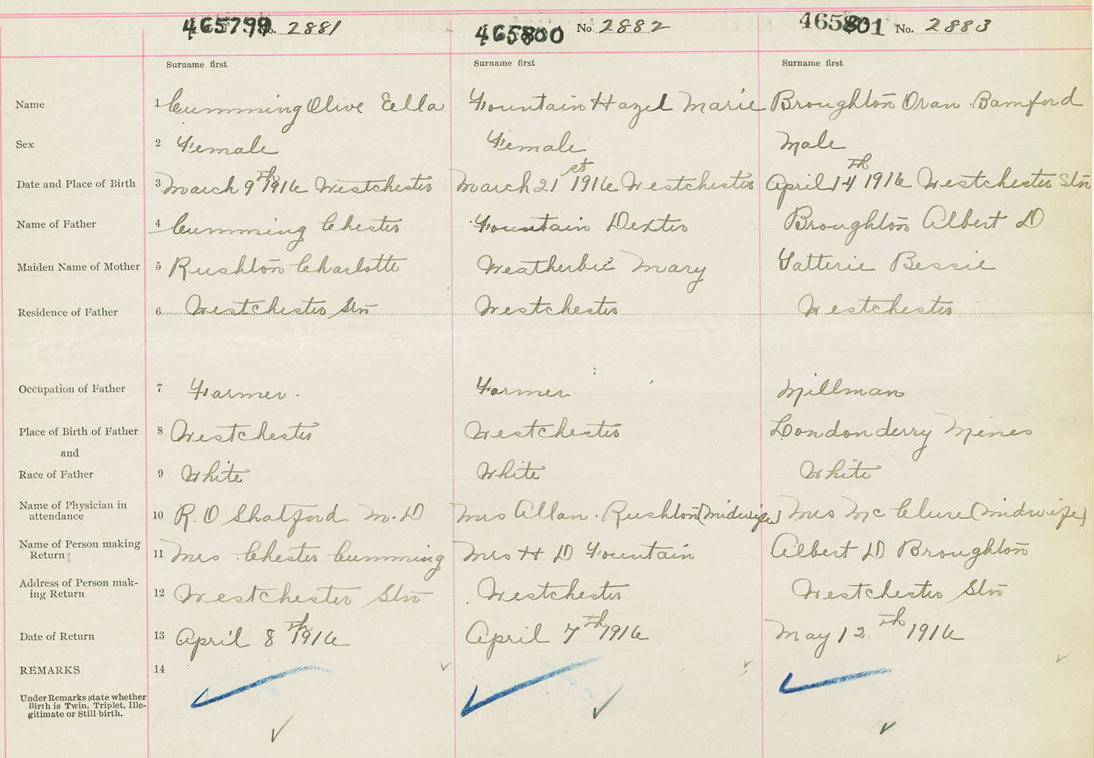 465799 No. 2881 465800 No 2882 465801 No. 2883
Surname first Surname first Surname first
Name 1 Cumming Olive Eella Fountain Hazel Marie Broughton Oran Bamford
Sex 2 Female Female Male
Date and Place of Birth 3 March 9th 1916 Westchester March 21st 1916 Westchester April 14th 1916 Westchester Stn
Name of Father 4 Cumming Chester Fountain Dexter Broughton Albert D
Maiden Name of Mother 5 Rushton Charlotte Weatherbie Mary Bessie
Residence of Father 6 Westchester Stn Westchester Westchester
Occupation of Father 7 Farmer. Farmer Millman
Place of Birth of Father 8 Westchester Westchester Londonderry Mines
and
Race of Father 9 White White White
Name of Physician in
attendance 10 R. D Shatford M.D Mrs Allan Rushton (Midwife) Mrs McClure (Midwife)
Name of Person making
Return 11 Mrs Chester Cumming Mrs H D Fountain Albert D Broughton
Address of Person mak-
ing Return 12 Westchester Stn Westchester Westchester Stn
Date of Return 13 April 8th 1916 April 7th 1916 May 12th 1916
REMARKS 14
Under Remarks state whether
Birth is Twin, Triplet, Ille-
gitimate or Still birth.